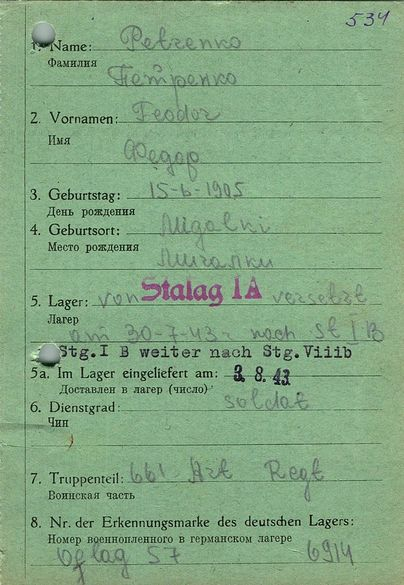 534
1. Name: Petrenko
Фамилия
Петренко
2. Vornamen: Feodor
Имя
Федор
3. Geburtstag: 15-6-1905
День рождения
4. Geburtsort: Migalki
Место рождения
Мигалки
5. Lager: von Stalag IA versetzt
Лагерь
am 30-7-43 nach St I B
Stg.I B weiter nach Stg.Viiib
5a. Im Lager eingeliefert am: 3. 8. 43
Доставлен в лагерь (число)
6. Dienstgrad: soldat
Чин
7. Truppenteil: 661 Art Regt
Воинская часть
8. Nr. der Erkennungsmarke des deutschen Lagers:
Номер военнопленного в германском лагере
Oflag 57 6914